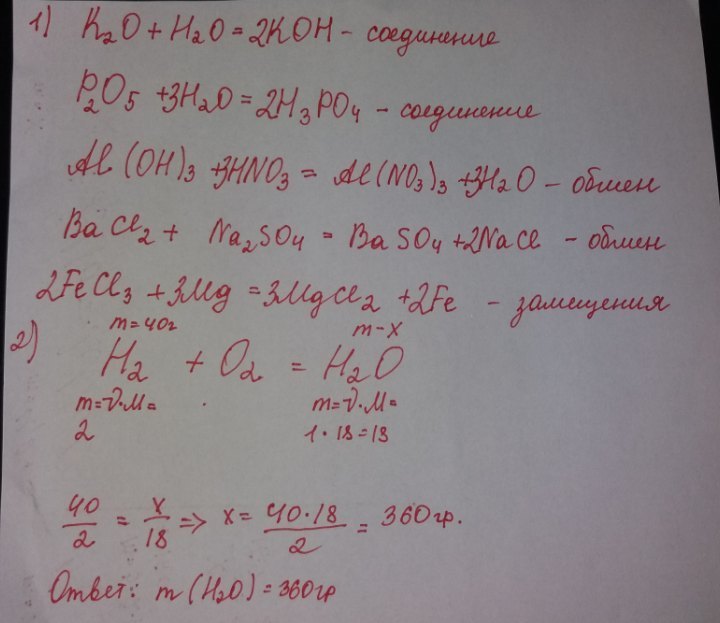 1) K₂O + H₂O = 2KOH - соединение
P₂O₅ + 3H₂O = 2H₃PO₄ - соединение
Al(OH)₃ + 3HNO₃ = Al(NO₃)₃ + 3H₂O - обмен
BaCl₂ + Na₂SO₄ = BaSO₄ + 2NaCl - обмен
2FeCl₃ + 3Mg = 3MgCl₂ + 2Fe - замещения
m=40г m-x
2) H₂ + O₂ = H₂O
m=ν·M= m=ν·M=
2 1·18=18
40/2 = x/18 => x = 40·18/2 = 360гр.
Ответ: m(H₂O)=360гр